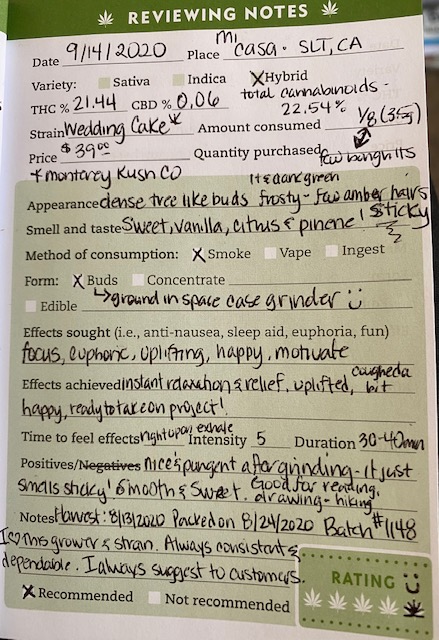 REVIEWING NOTES
Date 9/14/2020 Place mi casa. SLT, CA
Variety: Sativa Indica X Hybrid
THC % 21.44 CBD % 0.06 total cannabinoids - 22.54%
Strain Wedding Cake * Amount consumed 1/8 (3.5)
Price $39.00 Quantity purchased few bong hits
* Monterey Kush CO
It's dank green
Appearance dense tree like buds frosty - few amber hairs
Smell and taste Sweet, vanilla, citrus & pinene! sticky
Method of consumption: X Smoke Vape Ingest
Form: X Buds Concentrate
Edible ↳ ground in space case grinder
Effects sought (i.e., anti-nausea, sleep aid, euphoria, fun)
focus, euphoric, uplifting, happy, motivate
Effects achieved instant relaxation & relief, uplifted, coughed a bit
happy, ready to take on project!
Time to feel effects right upon exhale Intensity 5 Duration 30-40min
Positives/Negatives nice & pungent after grinding - it just
smells sticky! Smooth & Sweet. Good for reading, drawing - hiking
Notes Harvest: 8/13/2020 Packed on 8/24/2020 Batch #1148
I ♡ this grower & strain. Always consistent &
dependable. I always suggest to customers.
RATING
X Recommended Not recommended